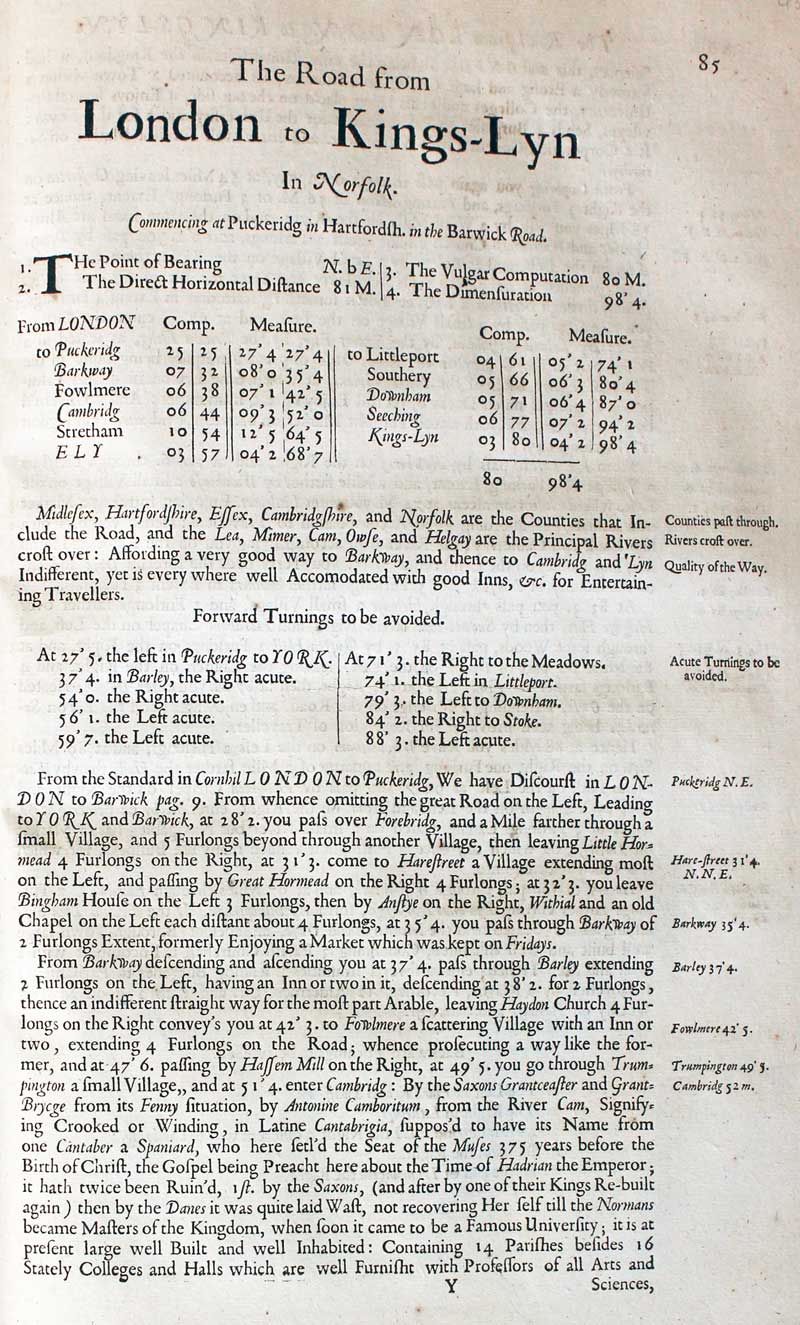 85
The Road from
London to Kings-Lyn
In Norfolk.
Commencing at Puckeridg in Hartfordſh. in the Barwick Road.
1. THe Point of Bearing N. b E. 3. The Vulgar Computation 80 M.
2. The Direct Horizontal Diſtance 81 M. 4. The Dimenſuration 98'4.
From LONDON Comp. Meaſure. Comp. Meaſure.
to Puckeridg 25 25 27'4 27'4 to Littleport 04 61 05'2 74'1
Barkway 07 32 08'0 35'4 Southery 05 66 06'3 80'4
Fowlmere 06 38 07'1 42'5 Downham 05 71 06'4 87'0
Cambridg 06 44 09'3 52'0 Seeching 06 77 07'2 94'2
Stretham 10 54 12'5 64'5 Kings-Lyn 03 80 04'2 98'4
ELY . 03 57 04'2 68'7
80 98'4
Midleſex, Hartfordſhire, Eſſex, Cambridgſhire, and Norfolk are the Counties that In-
clude the Road, and the Lea, Mimer, Cam, Owſe, and Helgay are the Principal Rivers
croſt over: Affording a very good way to Barkway, and thence to Cambridg and 'Lyn
Indifferent, yet is every where well Accomodated with good Inns, &c. for Entertain-
ing Travellers.
Counties paſt through.
Rivers croſt over.
Quality of the Way.
Forward Turnings to be avoided.
At 27'5. the left in Puckeridg to YORK. At 71'3. the Right to the Meadows.
37'4. in Barley, the Right acute. 74'1. the Left in Littleport.
54'0. the Right acute. 79'3. the Left to Downham.
56'1. the Left acute. 84'2. the Right to Stoke.
59'7. the Left acute. 88'3. the Left acute.
Acute Turnings to be
avoided.
From the Standard in Cornhil LONDON to Puckeridg, We have Diſcourſt in LON-
DON to Barwick pag. 9. From whence omitting the great Road on the Left, Leading
to YORK and Barwick, at 28'2. you paſs over Forebridg, and a Mile farther through a
ſmall Village, and 5 Furlongs beyond through another Village, then leaving Little Hor-
mead 4 Furlongs on the Right, at 31'3. come to Hareſtreet a Village extending moſt
on the Left, and paſſing by Great Hormead on the Right 4 Furlongs; at 32'3. you leave
Bingham Houſe on the Left 3 Furlongs, then by Anſtye on the Right, Withial and an old
Chapel on the Left each diſtant about 4 Furlongs, at 35'4. you paſs through Barkway of
2 Furlongs Extent, formerly Enjoying a Market which was kept on Fridays.
Puckeridg N. E.
Hare-ſtreet 31'4.
N. N. E.
Barkway 35'4.
From Barkway deſcending and aſcending you at 37'4. paſs through Barley extending
2 Furlongs on the Left, having an Inn or two in it, deſcending at 38'2. for 2 Furlongs,
thence an indifferent ſtraight way for the moſt part Arable, leaving Haydon Church 4 Fur-
longs on the Right convey's you at 42'3. to Fowlmere a ſcattering Village with an Inn or
two, extending 4 Furlongs on the Road; whence proſecuting a way like the for-
mer, and at 47'6. paſſing by Haſſem Mill on the Right, at 49'5. you go through Trum-
pington a ſmall Village,, and at 51'4. enter Cambridg: By the Saxons Grantceaſter and Grant-
Brycge from its Fenny ſituation, by Antonine Camboritum, from the River Cam, Signify-
ing Crooked or Winding, in Latine Cantabrigia, ſuppos'd to have its Name from
one Cantaber a Spaniard, who here ſetl'd the Seat of the Muſes 375 years before the
Birth of Chriſt, the Goſpel being Preacht here about the Time of Hadrian the Emperor;
it hath twice been Ruin'd, 1ſt. by the Saxons, (and after by one of their Kings Re-built
again) then by the Danes it was quite laid Waſt, not recovering Her ſelf till the Normans
became Maſters of the Kingdom, when ſoon it came to be a Famous Univerſity; it is at
preſent large well Built and well Inhabited: Containing 14 Pariſhes beſides 16
Stately Colleges and Halls which are well Furniſht with Profeſſors of all Arts and
Barley 37'4.
Fowlmere 42'5.
Trumpington 49'5.
Cambridg 52 m.
Y Sciences,